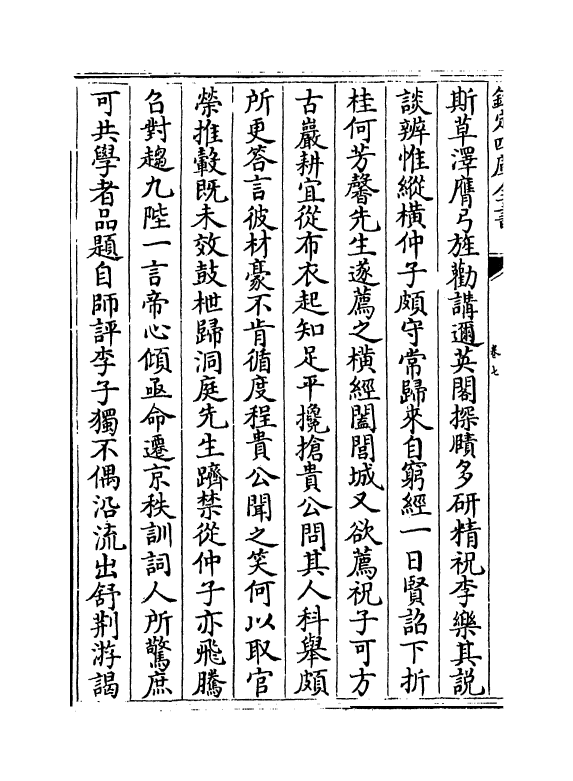 欽定四庫全書
卷七
斯草澤膺弓旌勸講邇英閣探賾多研精祝李樂其説
談辨惟縱橫仲子頗守常歸來自窮經一日賢詔下折
桂何芳馨先生遂薦之橫經闔閭城又欲薦祝子可方
古巖耕宜從布衣起知足平攙搶貴公問其人科舉頗
所更答言彼材豪不肯循度程貴公聞之笑何以取官
榮推轂既未效鼓枻歸洞庭先生躋禁從仲子亦飛騰
召對趨九陛一言帝心傾亟命遷京秩訓詞人所驚庶
可共學者品題自師評李子獨不偶沿流出舒荆游謁